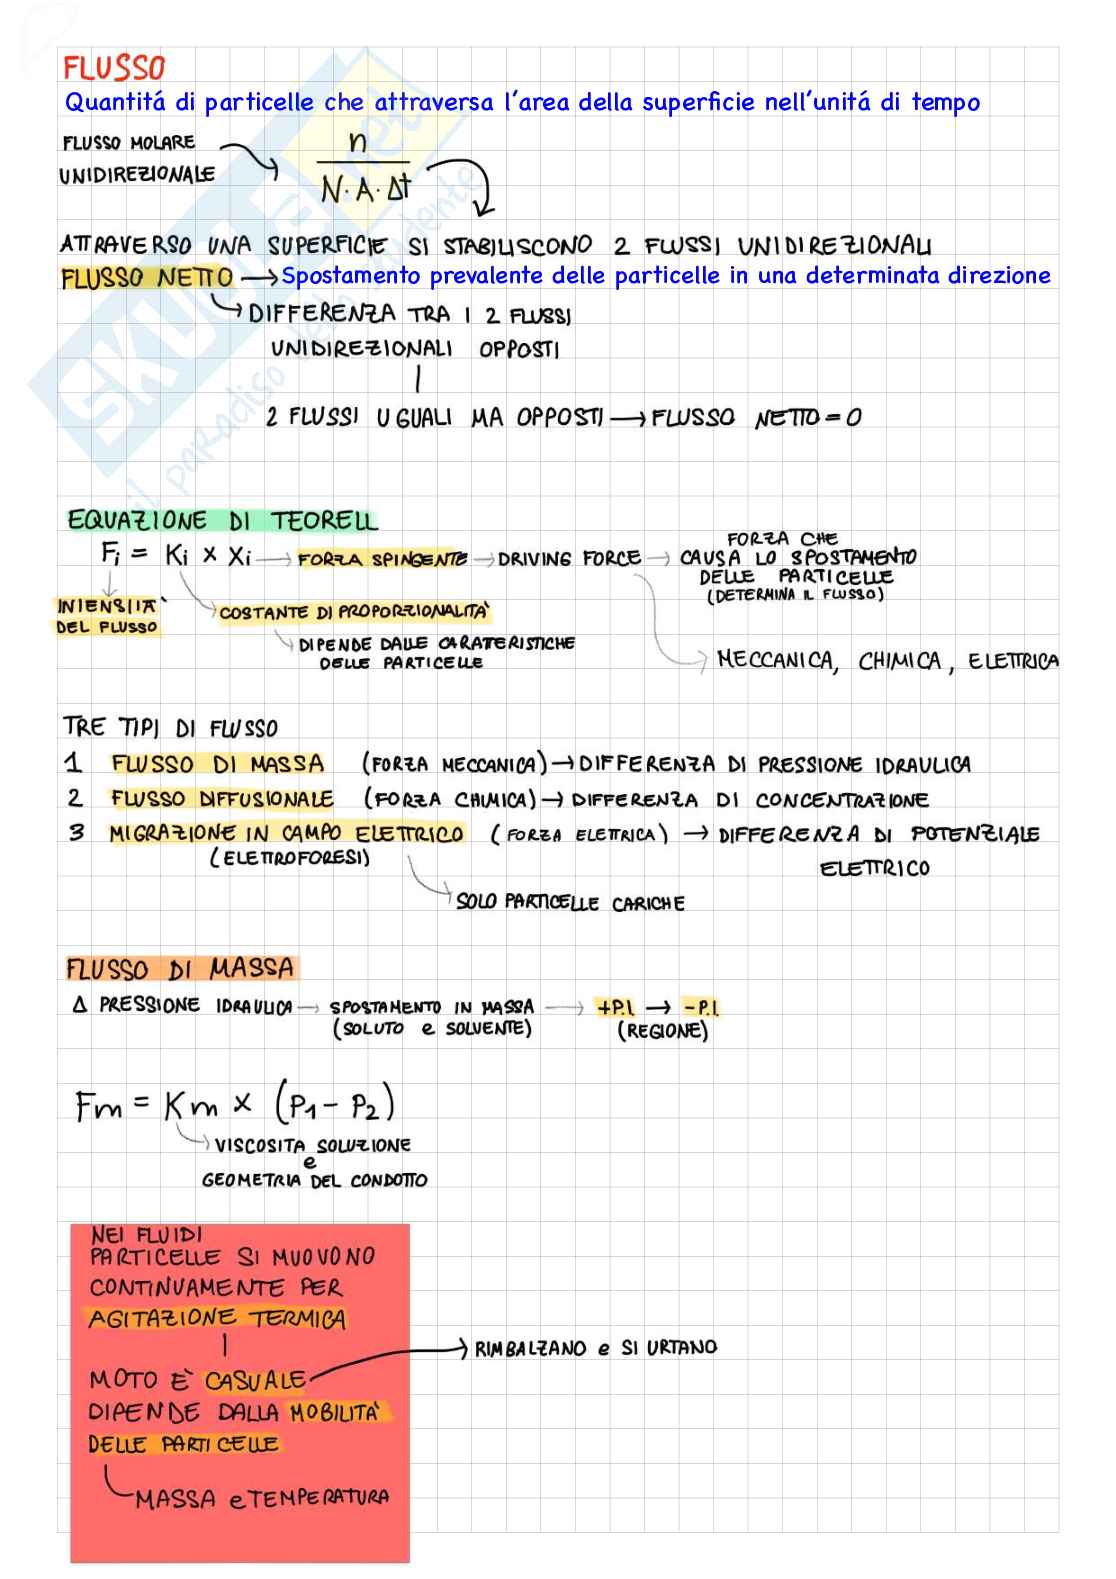 FLUSSO
Quantitá di particelle che attraversa l'area della superficie nell'unitá di tempo
FLUSSO MOLARE
UNIDIREZIONALE
n
N·A·Δt
ATTRAVERSO UNA SUPERFICIE SI STABILISCONO 2 FLUSSI UNIDIREZIONALI
FLUSSO NETTO → Spostamento prevalente delle particelle in una determinata direzione
→ DIFFERENZA TRA I 2 FLUSSI
UNIDIREZIONALI OPPOSTI
2 FLUSSI UGUALI MA OPPOSTI → FLUSSO NETTO = 0
EQUAZIONE DI TEORELL
Fi = Ki x Xi → FORZA SPINGENTE → DRIVING FORCE → FORZA CHE
CAUSA LO SPOSTAMENTO
DELLE PARTICELLE
(DETERMINA IL FLUSSO)
INTENSITÀ
DEL FLUSSO
COSTANTE DI PROPORZIONALITÀ
DIPENDE DALLE CARATERISTICHE
DELLE PARTICELLE
MECCANICA, CHIMICA, ELETTRICA
TRE TIPI DI FLUSSO
1 FLUSSO DI MASSA (FORZA MECCANICA) → DIFFERENZA DI PRESSIONE IDRAULICA
2 FLUSSO DIFFUSIONALE (FORZA CHIMICA) → DIFFERENZA DI CONCENTRAZIONE
3 MIGRAZIONE IN CAMPO ELETTRICO (FORZA ELETTRICA) → DIFFERENZA DI POTENZIALE
ELETTRICO
(ELETTROFORESI)
SOLO PARTICELLE CARICHE
FLUSSO DI MASSA
Δ PRESSIONE IDRAULICA → SPOSTAMENTO IN MASSA → +P.I. → -P.I.
(SOLUTO e SOLVENTE) (REGIONE)
Fm = Km x (P1 - P2)
VISCOSITA SOLUZIONE
e
GEOMETRIA DEL CONDOTTO
NEI FLUIDI
PARTICELLE SI MUOVONO
CONTINUAMENTE PER
AGITAZIONE TERMICA
MOTO È CASUALE → RIMBALZANO e SI URTANO
DIPENDE DALLA MOBILITÀ
DELLE PARTICELLE
MASSA e TEMPERATURA
SKUOLA.net
il paradiso dello studente